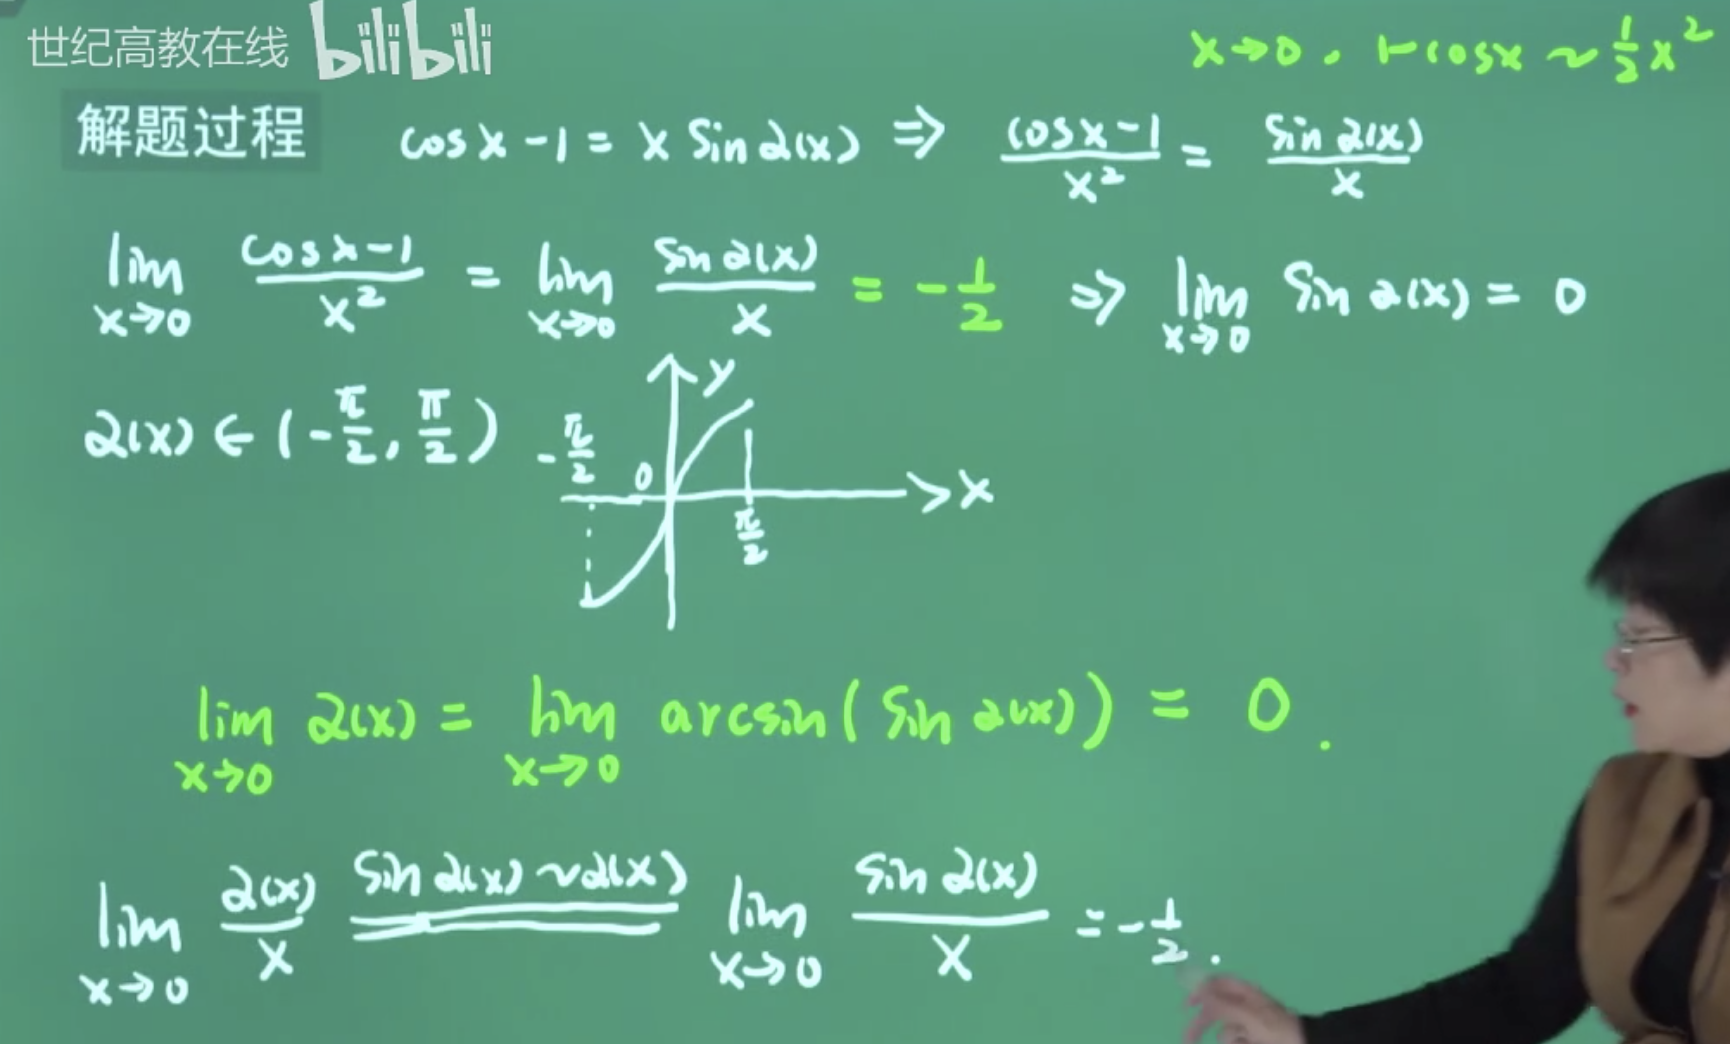 世纪高教在线 bilibili
x→0 . 1-cosx ~ 1/2 x²
解题过程 cosx-1 = x sin α(x) ⇒ (cosx-1)/x² = sin α(x)/x
lim x→0 (cosx-1)/x² = lim x→0 sin α(x)/x = -1/2 ⇒ lim x→0 sin α(x) = 0
α(x) ∈ (-π/2, π/2)
y
-π/2 0 x
π/2
lim x→0 α(x) = lim x→0 arcsin(sin α(x)) = 0.
lim x→0 α(x)/x sin α(x)~α(x) = lim x→0 sin α(x)/x = -1/2.